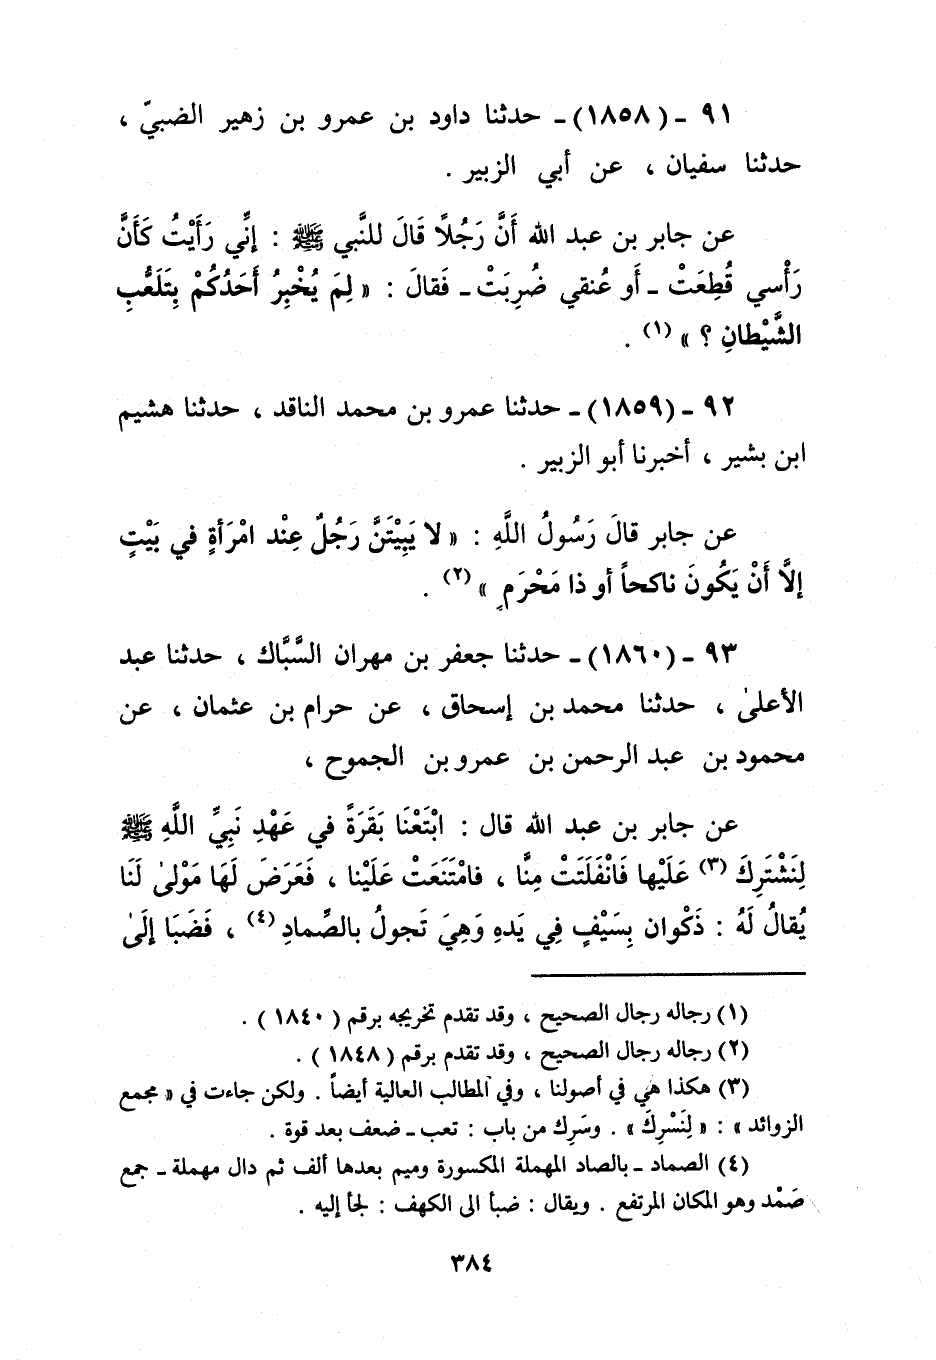 ٩١ ـ (١٨٥٨) ـ حدثنا داود بن عمرو بن زهير الضبيّ ،
حدثنا سفيان ، عن أبي الزبير .
عن جابر بن عبد الله أَنَّ رَجُلًا قَالَ للنَّبي ﷺ : إنِّي رَأَيْتُ كَأَنَّ
رَأْسي قُطِعَتْ ـ أَو عُنقي ضُرِبَتْ ـ فَقالَ : « لِمَ يُخْبِرُ أَحَدُكُمْ بِتَلَعُّبِ
الشَّيْطانِ ؟ » (١) .
٩٢ ـ (١٨٥٩) ـ حدثنا عمرو بن محمد الناقد ، حدثنا هشيم
ابن بشير ، أخبرنا أبو الزبير .
عن جابر قالَ رَسُولُ اللَّهِ : « لا يَبِيْتَنَّ رَجُلٌ عِنْد امْرَأةٍ في بَيْتٍ
إلَّا أَنْ يَكُونَ ناكحاً أو ذا مَحْرَمٍ » (٢) .
٩٣ ـ (١٨٦٠) ـ حدثنا جعفر بن مهران السَّبَّاك ، حدثنا عبد
الأعلىٰ ، حدثنا محمد بن إسحاق ، عن حرام بن عثمان ، عن
محمود بن عبد الرحمن بن عمرو بن الجموح ،
عن جابر بن عبد الله قال : ابْتَعْنَا بَقَرَةً في عَهْدِ نَبِيِّ اللَّهِ ﷺ
لِنَشْتَرِكَ (٣) عَلَيْها فَانْفَلَتَتْ مِنَّا ، فامْتَنَعَتْ عَلَيْنا ، فَعَرَضَ لَهَا مَوْلىٰ لَنَا
يُقالُ لَهُ : ذَكْوان بِسَيْفٍ فِي يَدهِ وَهِيَ تَجولُ بالصِّمادِ (٤) ، فَضَبَا إلَىٰ
(١) رجاله رجال الصحيح ، وقد تقدم تخريجه برقم ( ١٨٤٠ ) .
(٢) رجاله رجال الصحيح ، وقد تقدم برقم ( ١٨٤٨ ) .
(٣) هكذا هي في أصولنا ، وفي المطالب العالية أيضاً . ولكن جاءت في « مجمع
الزوائد » : « لِنَسْرِكَ » . وسَرِك من باب : تعب ـ ضعف بعد قوة .
(٤) الصماد ـ بالصاد المهملة المكسورة وميم بعدها ألف ثم دال مهملة ـ جمع
صَمْد وهو المكان المرتفع . ويقال : ضبأ الى الكهف : لجأ إليه .
٣٨٤